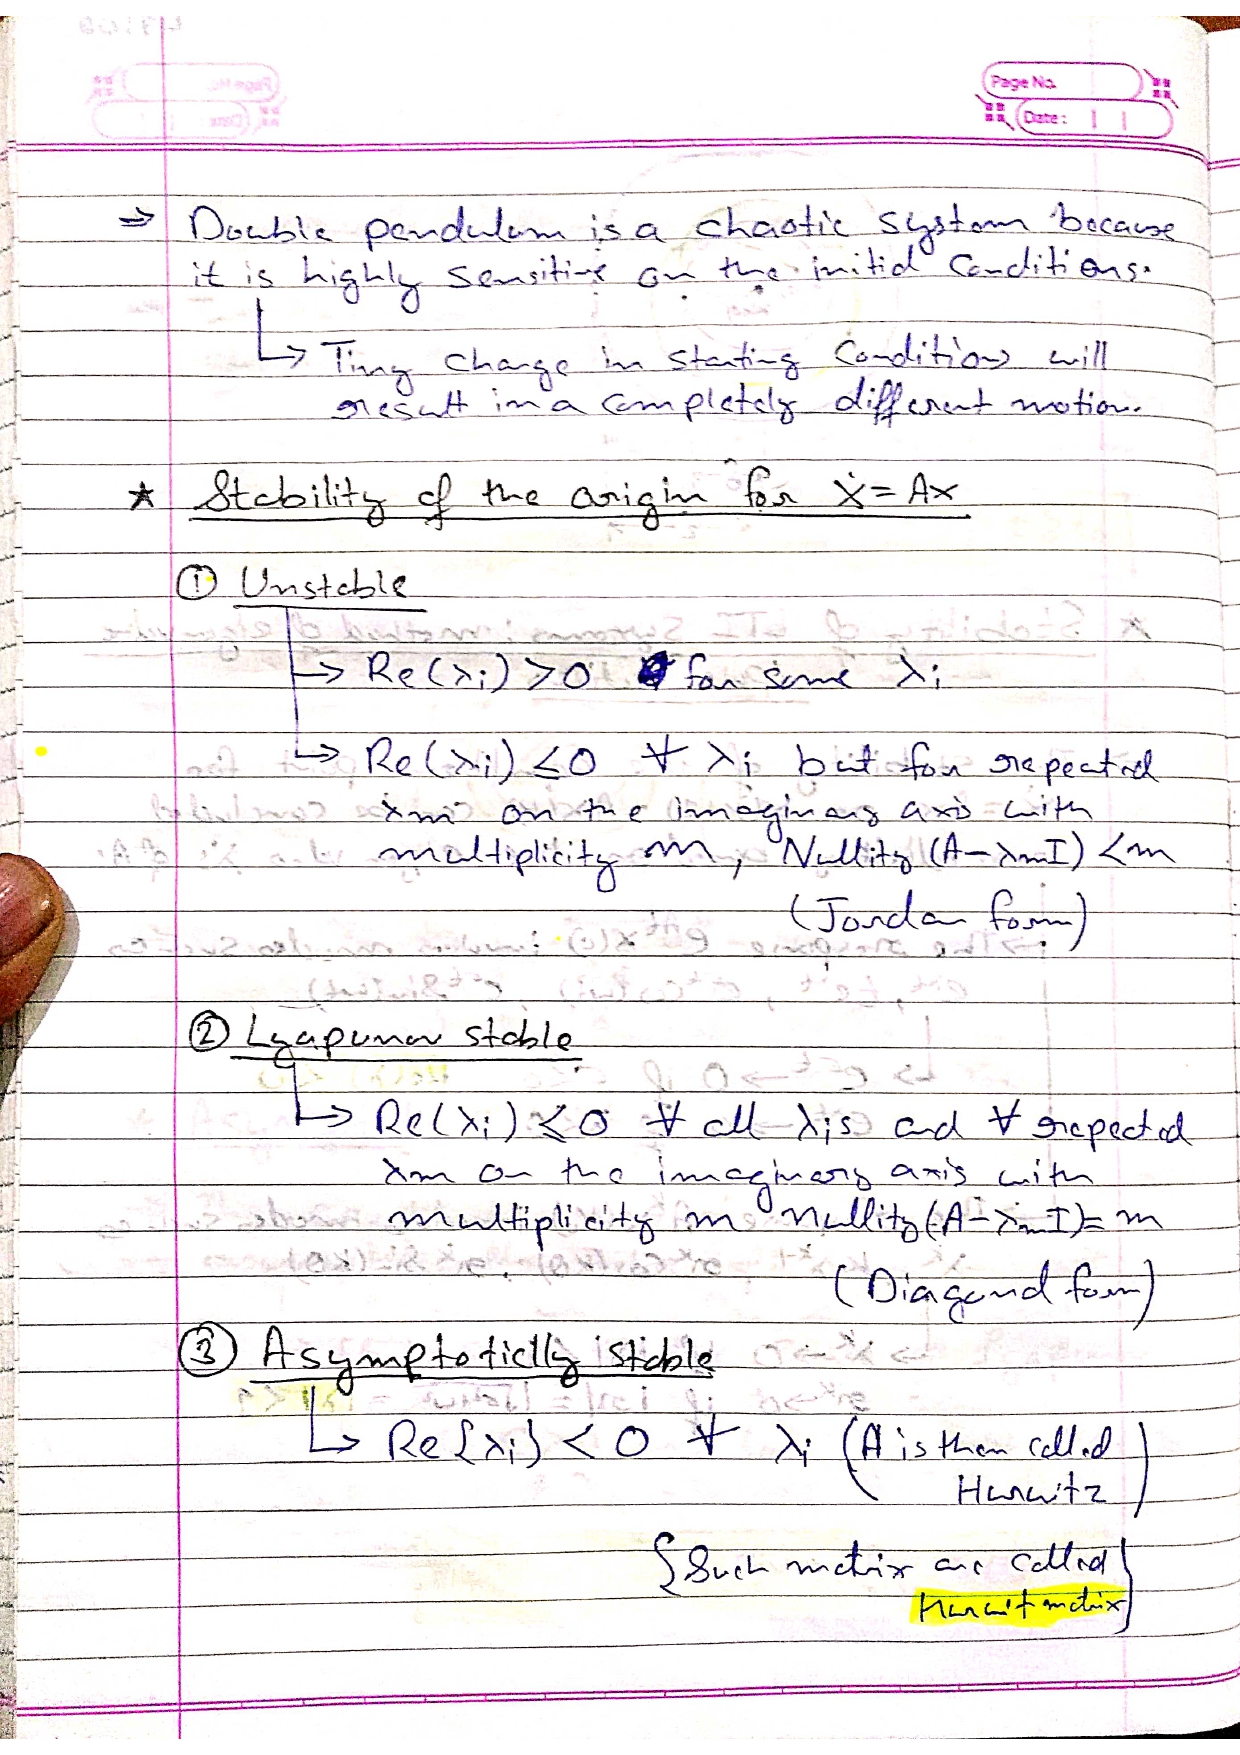 Page No.
Date :
⇒ Double pendulum is a chaotic system because
it is highly sensitive on the initial conditions.
↳ Tiny change in starting conditions will
result in a completely different motion.
★ Stability of the origin for ẋ = Ax
① Unstable
→ Re(λi) > 0 for some λi
↳ Re(λi) ≤ 0 ∀ λi but for repeated
λm on the imaginary axis with
multiplicity m, Nullity (A-λmI) < m
(Jordan form)
② Lyapunov stable
↳ Re(λi) ≤ 0 ∀ all λis and ∀ repeated
λm on the imaginary axis with
multiplicity m nullity (A-λmI) = m
(Diagonal form)
③ Asymptotically stable
↳ Re{λi} < 0 ∀ λi (A is then called
Hurwitz)
{Such matrix are called
Hurwit matrix}